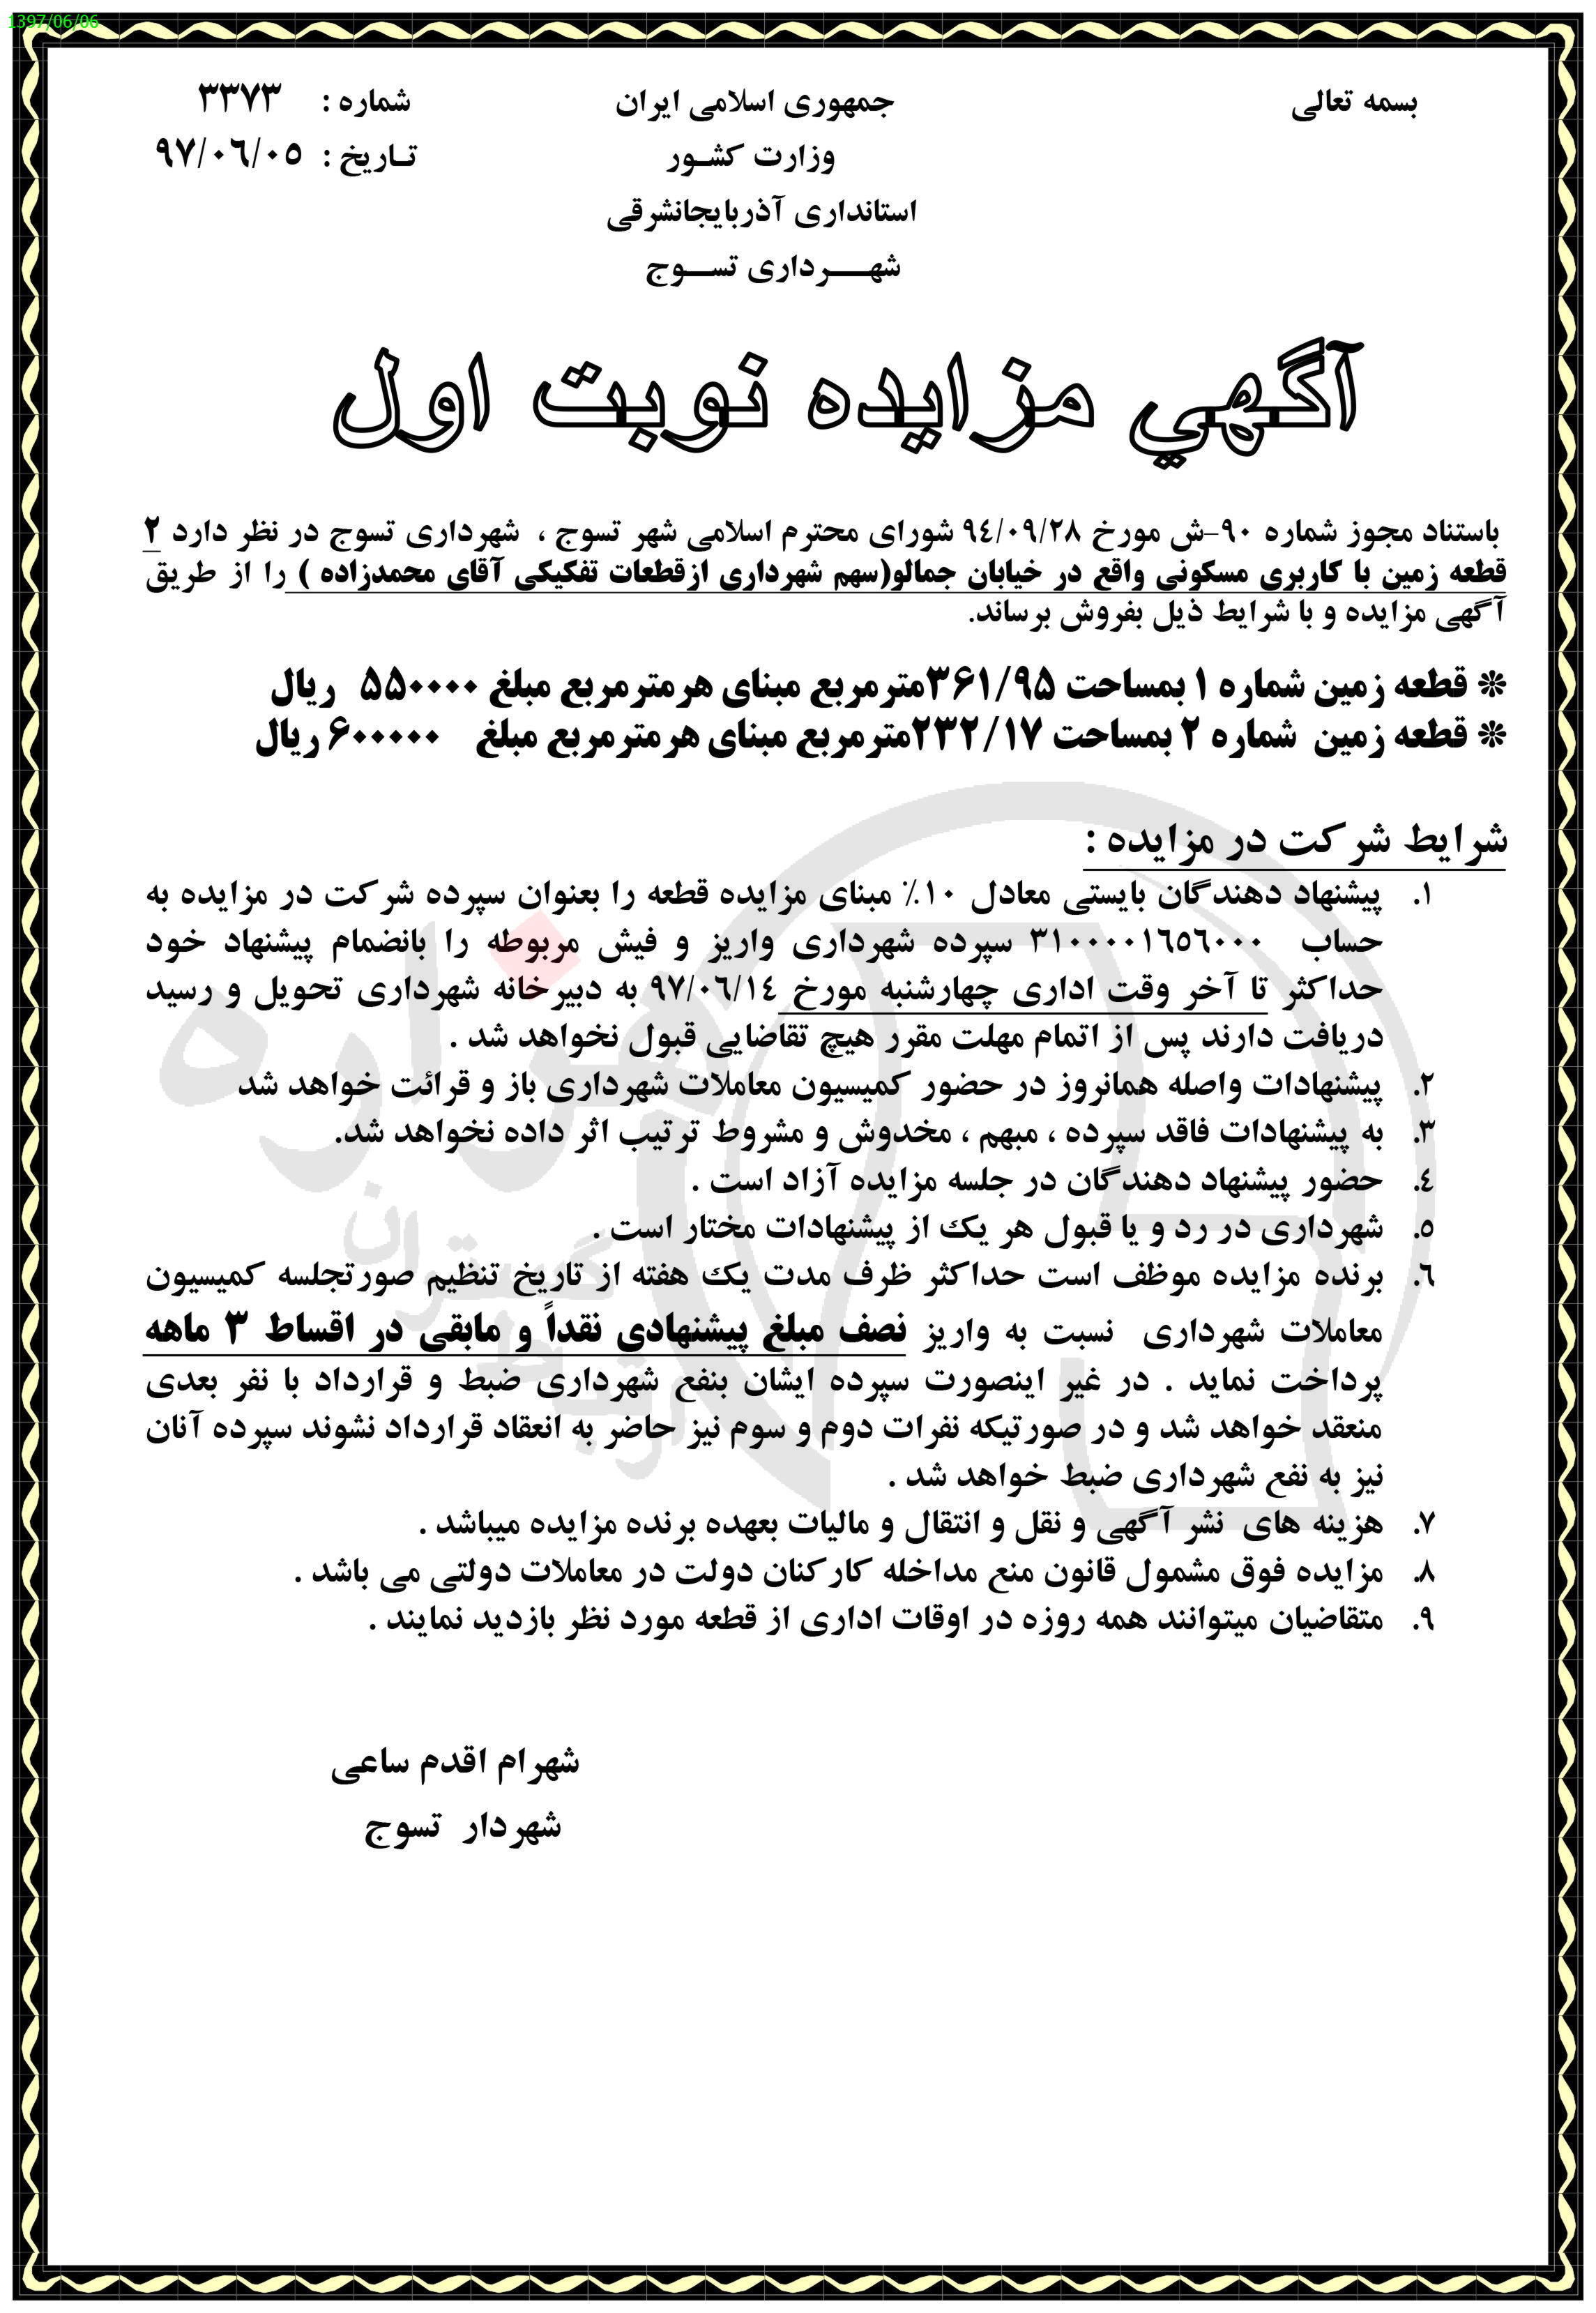 1397/06/06
بسمه تعالی
جمهوری اسلامی ایران
شماره : ۳۳۷۳
وزارت کشـور
تـاریخ : ۹۷/۰٦/۰٥
استانداری آذربایجانشرقی
شهـــرداری تســوج
آگهي مزایده نوبت اول
باستناد مجوز شماره ۹۰-ش مورخ ۹٤/۰۹/۲۸ شورای محترم اسلامی شهر تسوج ، شهرداری تسوج در نظر دارد ۲
قطعه زمین با کاربری مسکونی واقع در خیابان جمالو(سهم شهرداری ازقطعات تفکیکی آقای محمدزاده ) را از طریق
آگهی مزایده و با شرایط ذیل بفروش برساند.
❊ قطعه زمین شماره ۱ بمساحت ۳۶۱/۹۵مترمربع مبنای هرمترمربع مبلغ ۵۵۰۰۰۰ ریال
❊ قطعه زمین شماره ۲ بمساحت ۲۳۲/۱۷مترمربع مبنای هرمترمربع مبلغ ۶۰۰۰۰۰ ریال
شرایط شرکت در مزایده :
۱. پیشنهاد دهندگان بایستی معادل ۱۰٪ مبنای مزایده قطعه را بعنوان سپرده شرکت در مزایده به
حساب ۳۱۰۰۰۰۱٦٥٦۰۰۰ سپرده شهرداری واریز و فیش مربوطه را بانضمام پیشنهاد خود
حداکثر تا آخر وقت اداری چهارشنبه مورخ ۹۷/۰٦/۱٤ به دبیرخانه شهرداری تحویل و رسید
دریافت دارند پس از اتمام مهلت مقرر هیچ تقاضایی قبول نخواهد شد .
۲. پیشنهادات واصله همانروز در حضور کمیسیون معاملات شهرداری باز و قرائت خواهد شد
۳. به پیشنهادات فاقد سپرده ، مبهم ، مخدوش و مشروط ترتیب اثر داده نخواهد شد.
٤. حضور پیشنهاد دهندگان در جلسه مزایده آزاد است .
٥. شهرداری در رد و یا قبول هر یک از پیشنهادات مختار است .
٦. برنده مزایده موظف است حداکثر ظرف مدت یک هفته از تاریخ تنظیم صورتجلسه کمیسیون
معاملات شهرداری نسبت به واریز نصف مبلغ پیشنهادی نقداً و مابقی در اقساط ۳ ماهه
پرداخت نماید . در غیر اینصورت سپرده ایشان بنفع شهرداری ضبط و قرارداد با نفر بعدی
منعقد خواهد شد و در صورتیکه نفرات دوم و سوم نیز حاضر به انعقاد قرارداد نشوند سپرده آنان
نیز به نفع شهرداری ضبط خواهد شد .
۷. هزینه های نشر آگهی و نقل و انتقال و مالیات بعهده برنده مزایده میباشد .
۸. مزایده فوق مشمول قانون منع مداخله کارکنان دولت در معاملات دولتی می باشد .
۹. متقاضیان میتوانند همه روزه در اوقات اداری از قطعه مورد نظر بازدید نمایند .
شهرام اقدم ساعی
شهردار تسوج